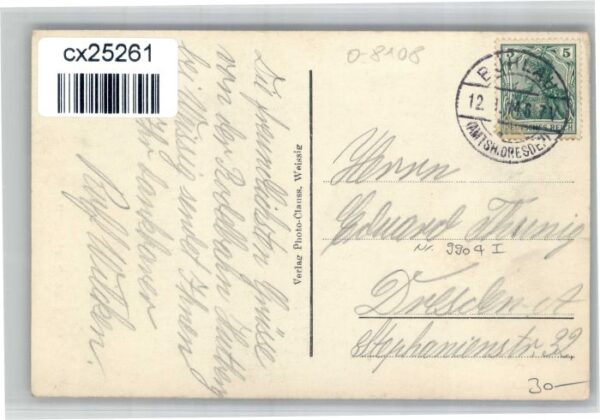 cx25261
Die freundlichsten Grüsse
von der Rodelbahn
bei Weissig sendet Ihnen
Ihr dankbarer
Verlag Photo-Clauss, Weissig
0-8108
5
BÜHLAU
12.
(AMTSH. DRESDEN)
DEUTSCHES REICH
Herrn
Eduard
Nr. 9904 I
Dresden-A
Stephanienstr 39
30-